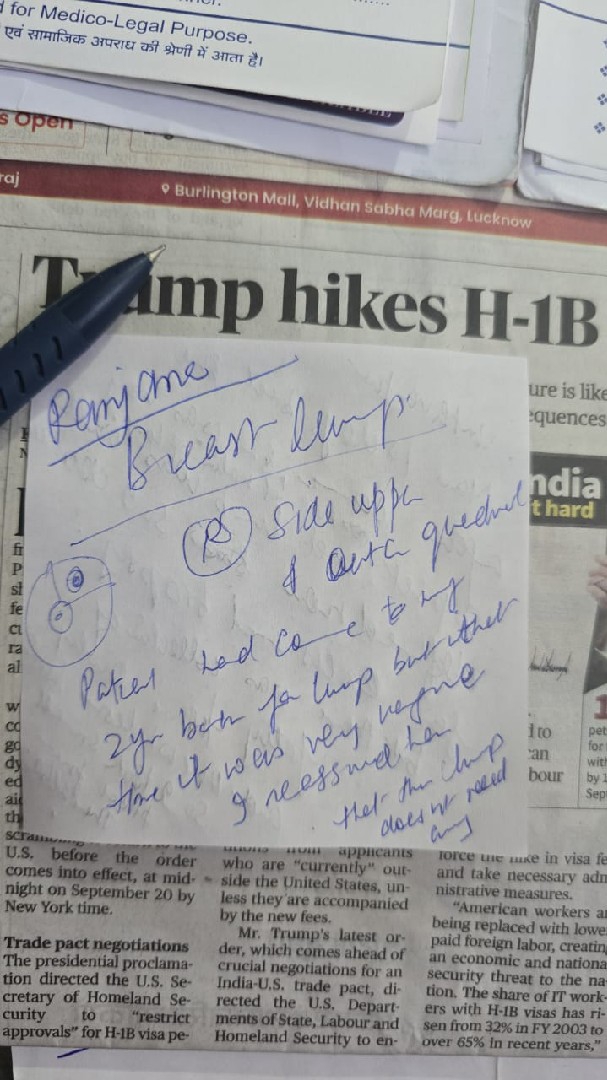 for Medico-Legal Purpose.
एवं सामाजिक अपराध की श्रेणी में आता है।
s Open
raj
Burlington Mall, Vidhan Sabha Marg, Lucknow
Trump hikes H-1B
ure is like
equences
ndia
t hard
Ranjana
Breast lump
(R) Side upper
& outer quadrant
Patient had come to my
2yr back for lump but that
time it was very vague
I reassured her
that the lump
does not need
any
d to
an
bour
1
pet
for
with
by 1
Sep
U.S. before the order
comes into effect, at mid-
night on September 20 by
New York time.
Trade pact negotiations
The presidential proclama-
tion directed the U.S. Se-
cretary of Homeland Se-
curity to “restrict
approvals” for H-1B visa pe-
applicants
who are “currently” out-
side the United States, un-
less they are accompanied
by the new fees.
Mr. Trump's latest or-
der, which comes ahead of
crucial negotiations for an
India-U.S. trade pact, di-
rected the U.S. Depart-
ments of State, Labour and
Homeland Security to en-
force the hike in visa fe
and take necessary adm
nistrative measures.
“American workers a
being replaced with lowe
paid foreign labor, creatin
an economic and nationa
security threat to the na-
tion. The share of IT work-
ers with H-1B visas has ri-
sen from 32% in FY 2003 to
over 65% in recent years,”